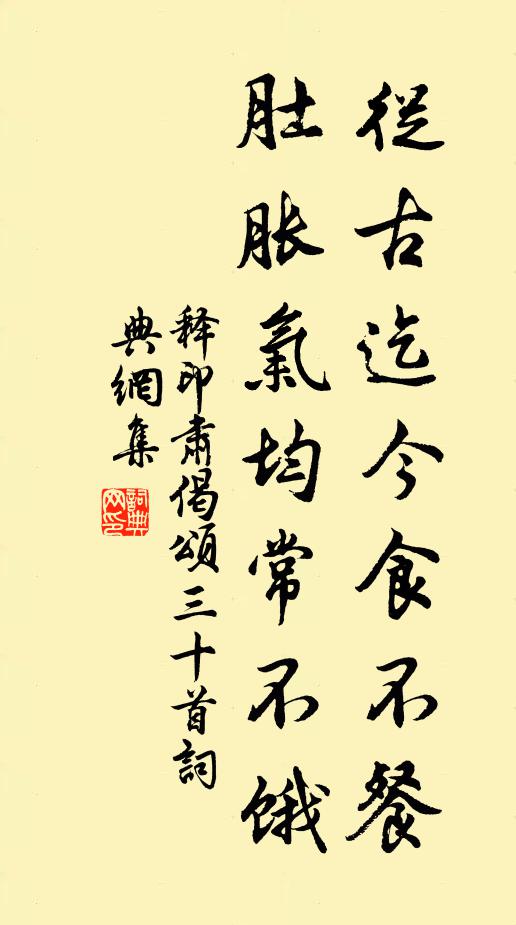 從古迄今食不餐
肚胀氣均常不饿
释印肅偈頌三十首詞
典網集
詞典网印